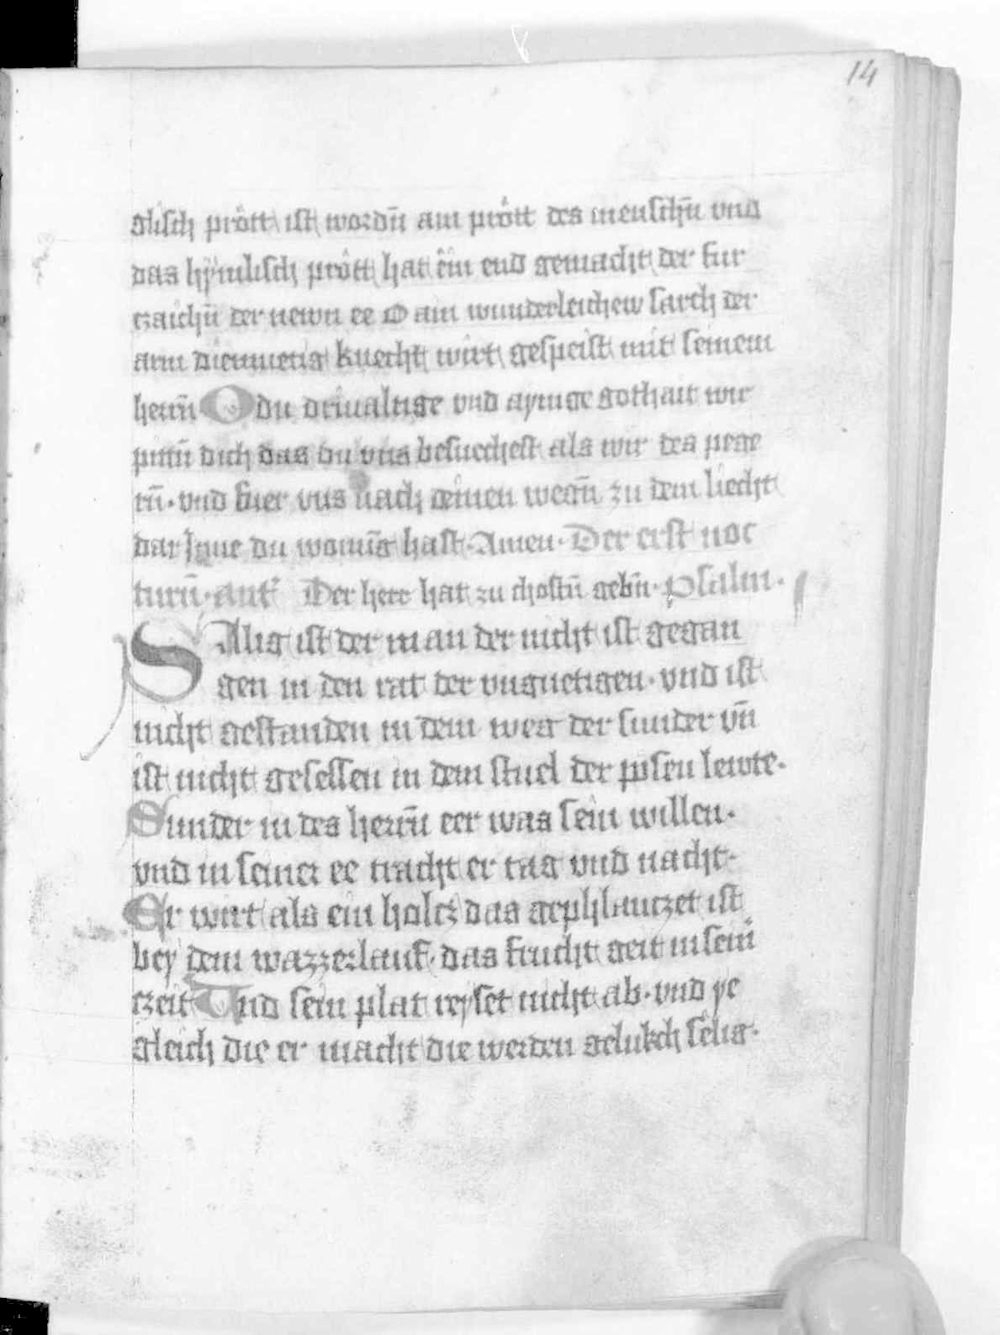 14
glisch prött ist wordn̄ ain prött des menschn̄ vnd
das hÿmlisch prött hat ein end gemacht der fur
czaichn̄ der newn ee O ain wunderleichew sach der
arm diemuetig knecht wirt gespeist mit seinem
herrn̄ O du driualtige vnd aynige gothait wir
pittn̄ dich das du vns besuechest als wir des pege
rn̄ · vnd fuer vns nach deinen wegn̄ zu dem liecht
dar Jnne du wonu̅g hast · Amen · Der erst noc
turn̄ · ant' Der herr hat zu chostn̄ gebn̄ · psalm ·
SAlig ist der man der nicht ist gegan
gen in den rat der vnguetigen · vnd ist
nicht gestanden in dem weg der sunder vn̄
ist nicht gesessen in dem stuel der posen lewte ·
Sunder in des herrn̄ eer was sein willen ·
vnd in seiner ee tracht er tag vnd nacht ·
Er wirt als ein holcz das gephlanczet ist
bey dem wazzerlauf · das frucht geit in sein̄
czeit Und sein plat reyset nicht ab · vnd ye
gleich die er macht die werden gelukch selig ·